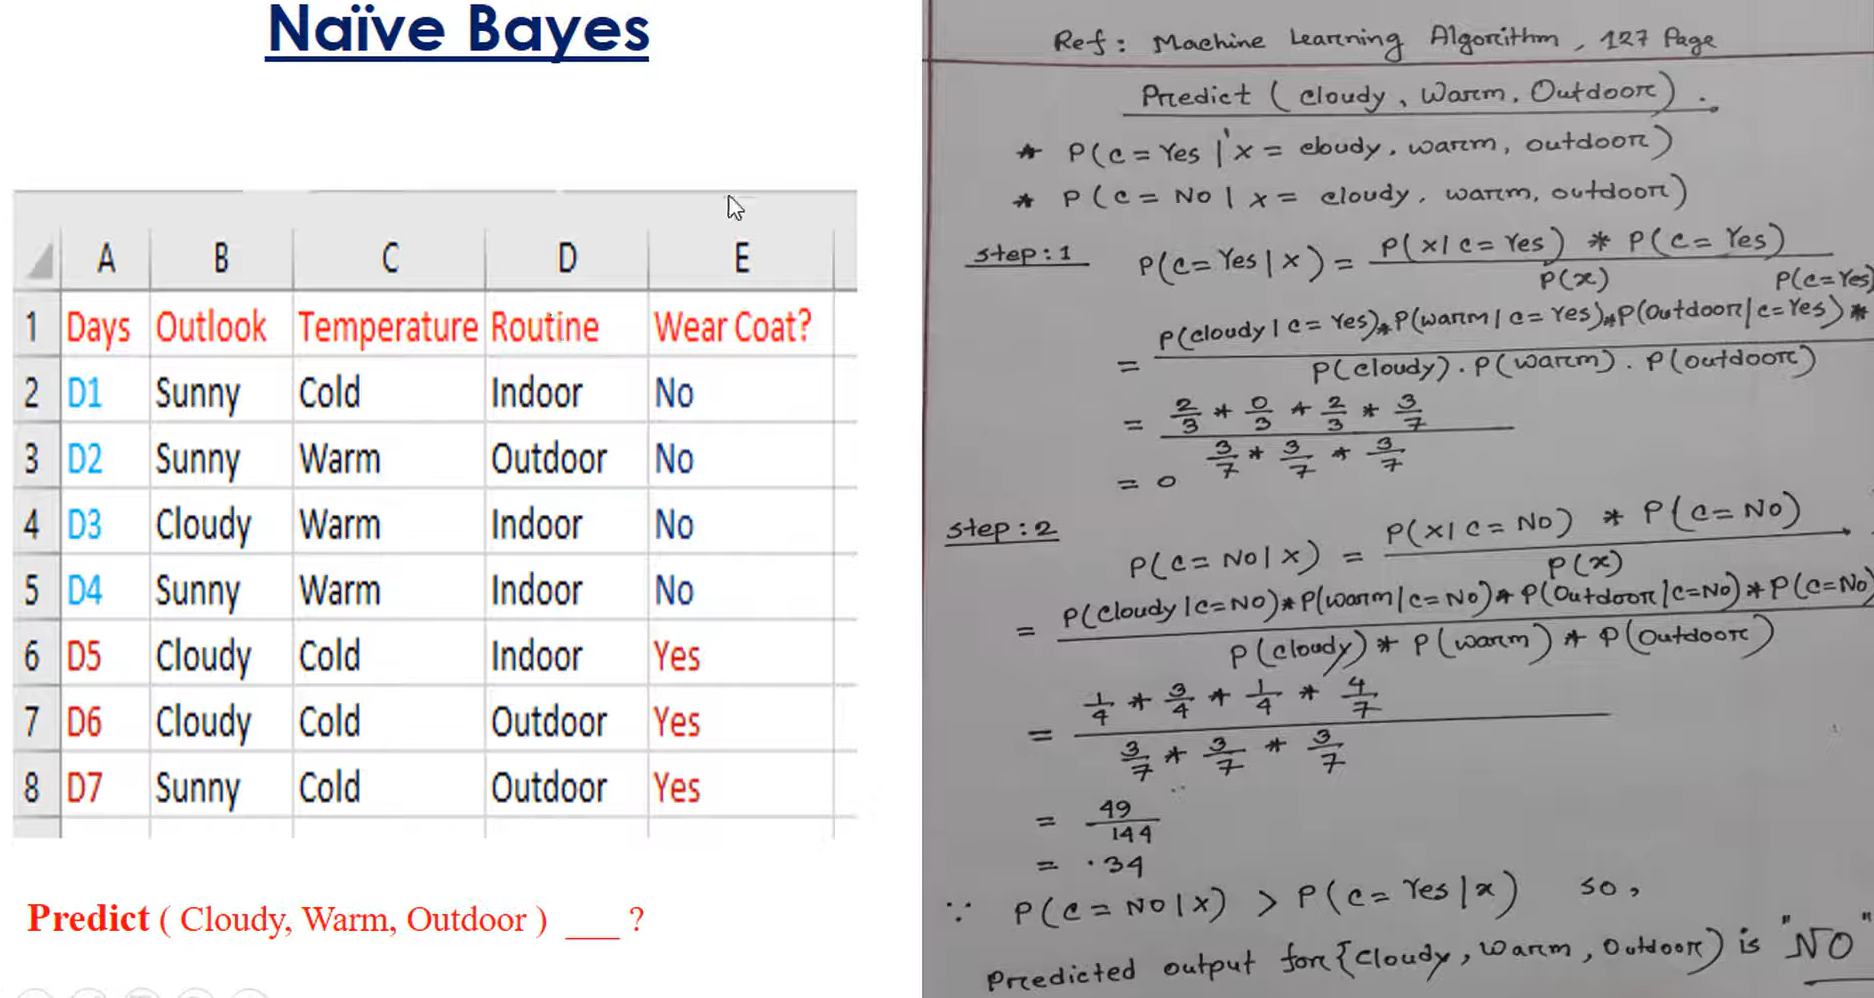 Naïve Bayes
A B C D E
1 Days Outlook Temperature Routine Wear Coat?
2 D1 Sunny Cold Indoor No
3 D2 Sunny Warm Outdoor No
4 D3 Cloudy Warm Indoor No
5 D4 Sunny Warm Indoor No
6 D5 Cloudy Cold Indoor Yes
7 D6 Cloudy Cold Outdoor Yes
8 D7 Sunny Cold Outdoor Yes
Predict ( Cloudy, Warm, Outdoor ) ___ ?
Ref: Machine Learning Algorithm, 127 Page
Predict (cloudy, Warm, Outdoor).
* P(C=Yes | X = cloudy, warm, outdoor)
* P(C = NO | X = cloudy, warm, outdoor)
Step:1 P(C=Yes|X) = P(X|C=Yes) * P(C=Yes)
P(x) P(C=Yes)
P(cloudy|C=Yes)*P(warm|C=Yes)*P(Outdoor|C=Yes)*
= P(cloudy).P(warm).P(outdoor)
= 2/3 * 0/3 * 2/3 * 3/7
3/7 * 3/7 * 3/7
= 0
Step:2
P(C=NO|X) = P(X|C=NO) * P(C=NO)
P(x)
= P(cloudy|C=NO)*P(warm|C=NO)*P(Outdoor|C=NO)*P(C=NO)
P(cloudy)*P(warm)*P(Outdoor)
= 1/4 * 3/4 * 1/4 * 4/7
3/7 * 3/7 * 3/7
= 49/144
= .34
∵ P(C=NO|X) > P(C=Yes|x) so,
Predicted output for {Cloudy, Warm, Outdoor) is "NO"